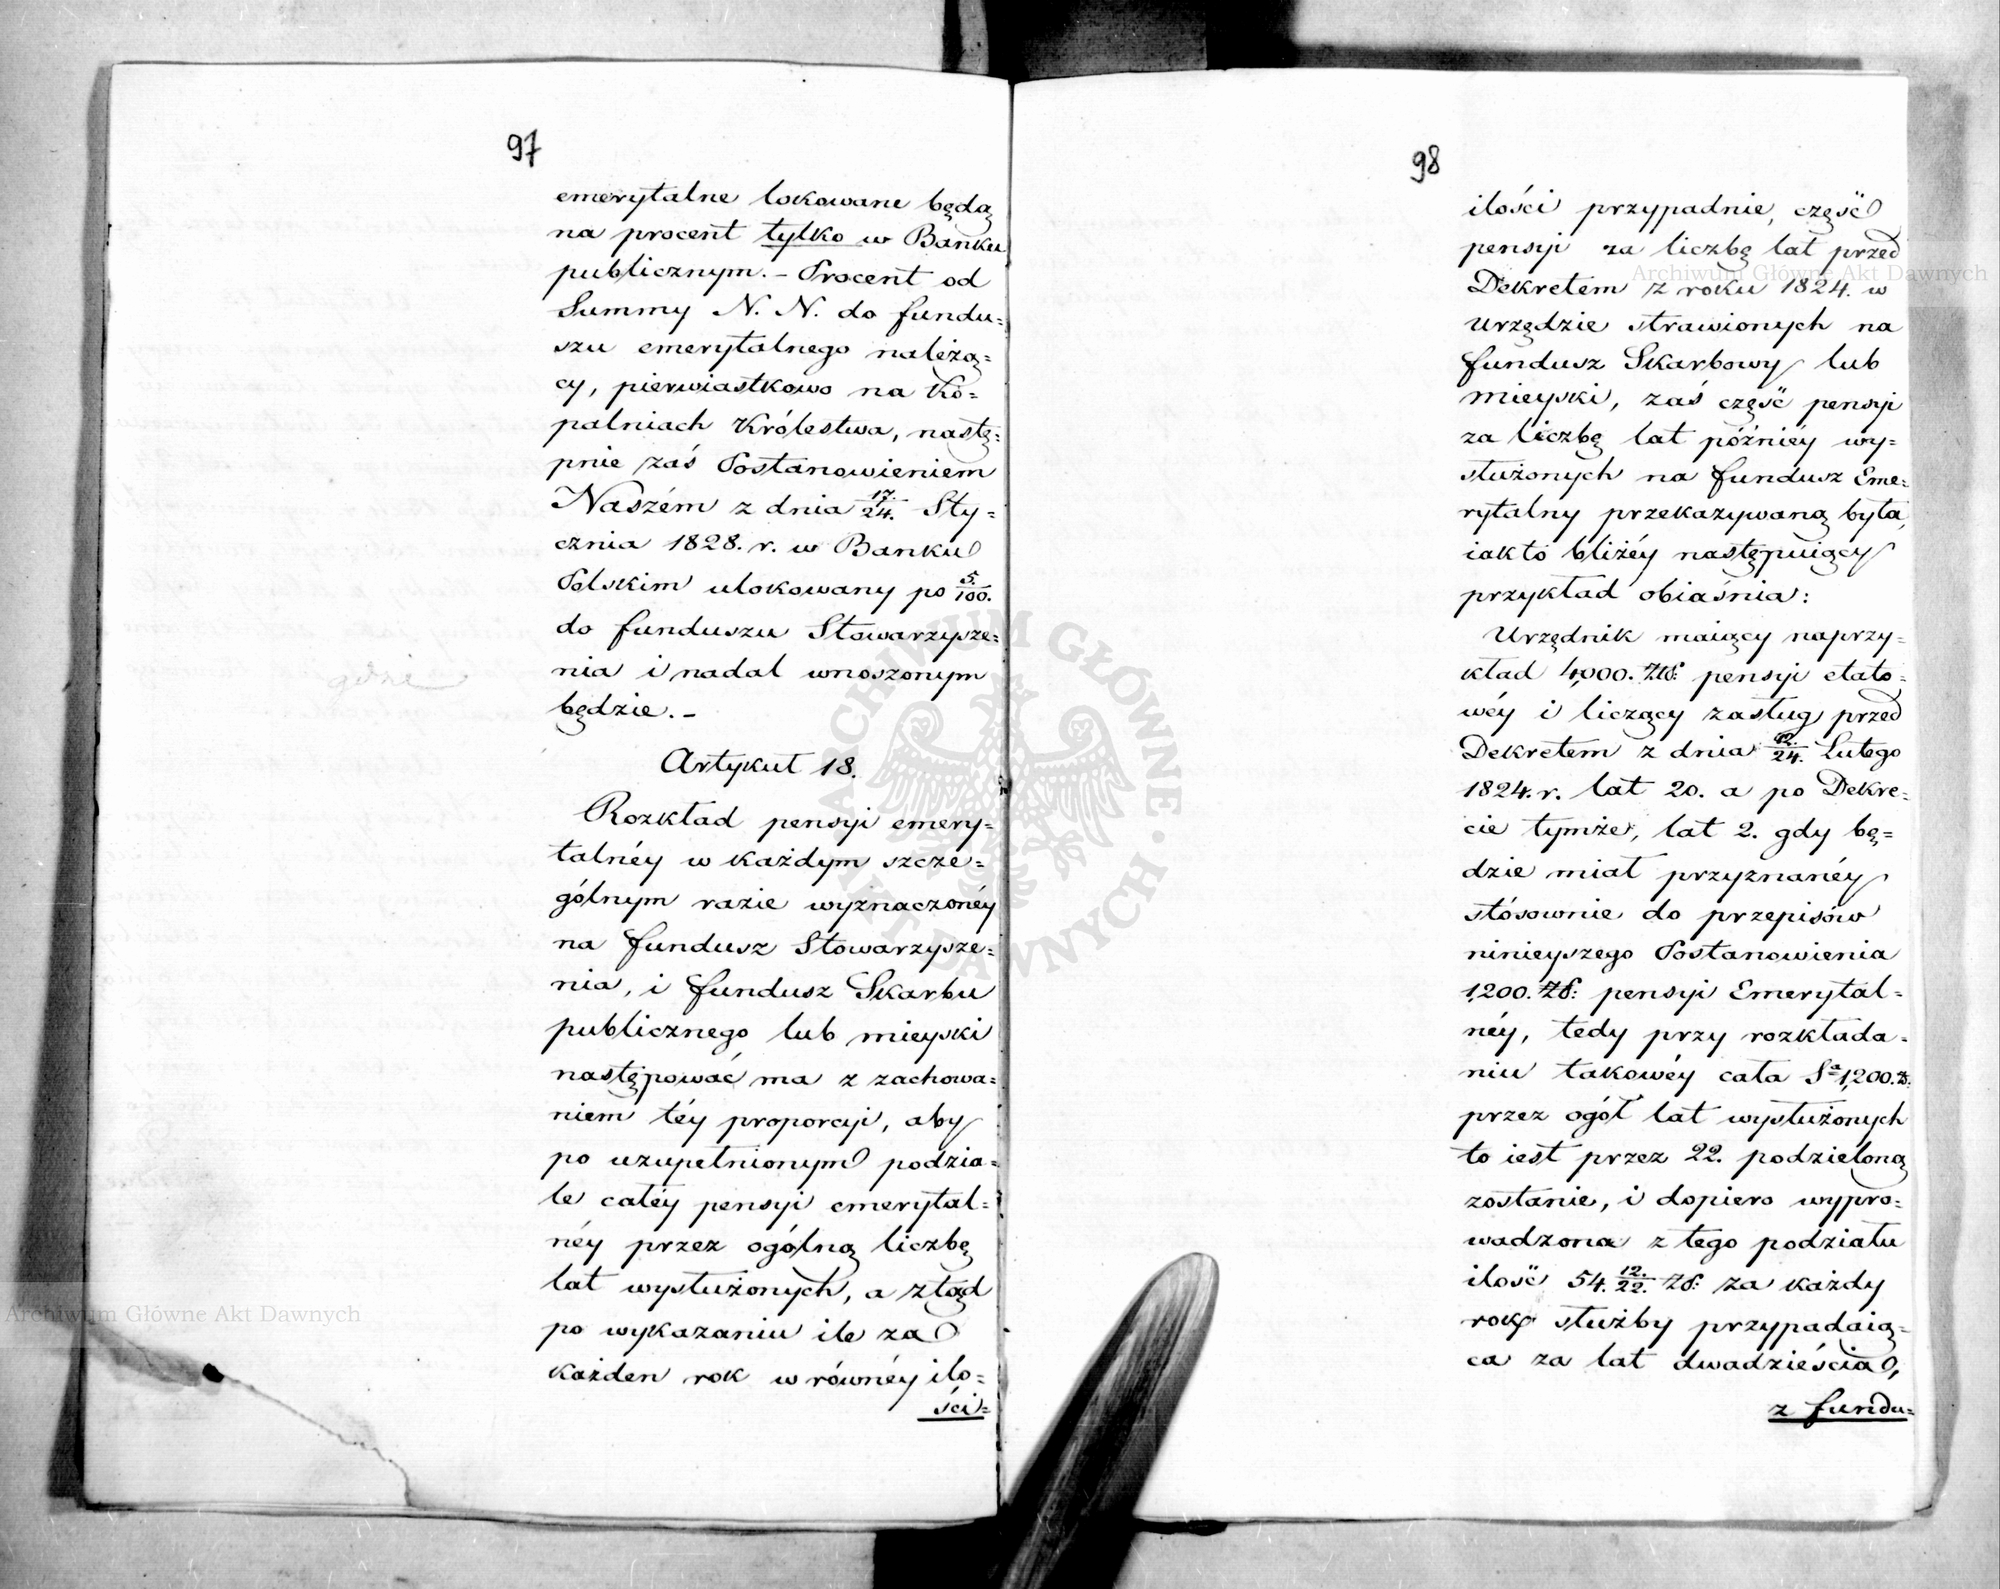 97
emerytalne lokowane będą
na procent tylko w Banku
publicznym. – Procent od
Summy N. N. do fundu=
szu emerytalnego należą=
cy, pierwiastkowo na Ko=
palniach Królestwa, nastę=
pnie zaś Postanowieniem
Naszém z dnia 12/24. Sty=
cznia 1828. r. w Banku
Polskim ulokowany po 5./100.
do funduszu Stowarzysze=
nia i nadal wnoszonym
będzie. –
Artykuł 18.
Rozkład pensyi emery=
talnéy w każdym szcze=
gólnym razie wyznaczonéy
na fundusz Stowarzysze=
nia, i fundusz Skarbu
publicznego lub mieyski
następować ma z zachowa=
niem téy proporcyi, aby
po uzupełnionym podzia=
le całéy pensyi emerytal=
néy przez ogólną liczbę
lat wysłużonych, a ztąd
po wykazaniu ile za
każden rok w równéy ilo=
ści=
gdzie
98
ilości przypadnie, część
pensyi za liczbę lat przed
Dekretem z roku 1824. w
urzędzie strawionych na
fundusz Skarbowy lub
mieyski, zaś część pensyi
za liczbę lat późniéy wy=
służonych na fundusz Eme=
rytalny przekazywaną była,
iak to bliżéy następuiący
przykład obiaśnia:
Urzędnik maiący naprzy=
kład 4,000. Złł: pensyi etato=
wéy i liczący zasług przed
Dekretem z dnia 12./24. Lutego
1824. r. lat 20. a po Dekre=
cie tymże, lat 2. gdy bę=
dzie miał przyznanéy
stósownie do przepisów
ninieyszego Postanowienia
1,200. Zł: pensyi Emerytal=
néy, tedy przy rozkłada=
niu takowéy cała Sa 1,200. Zł:
przez ogół lat wysłużonych
to iest przez 22. podzieloną
zostanie, i dopiero wypro=
wadzona z tego podziału
ilość 54. 12./22. Zł: za każdy
rok służby przypadaią=
ca za lat dwadzieścia,
z fundu=
Archiwum Główne Akt Dawnych
Archiwum Główne Akt Dawnych
ARCHIWUM GŁÓWNE AKT DAWNYCH